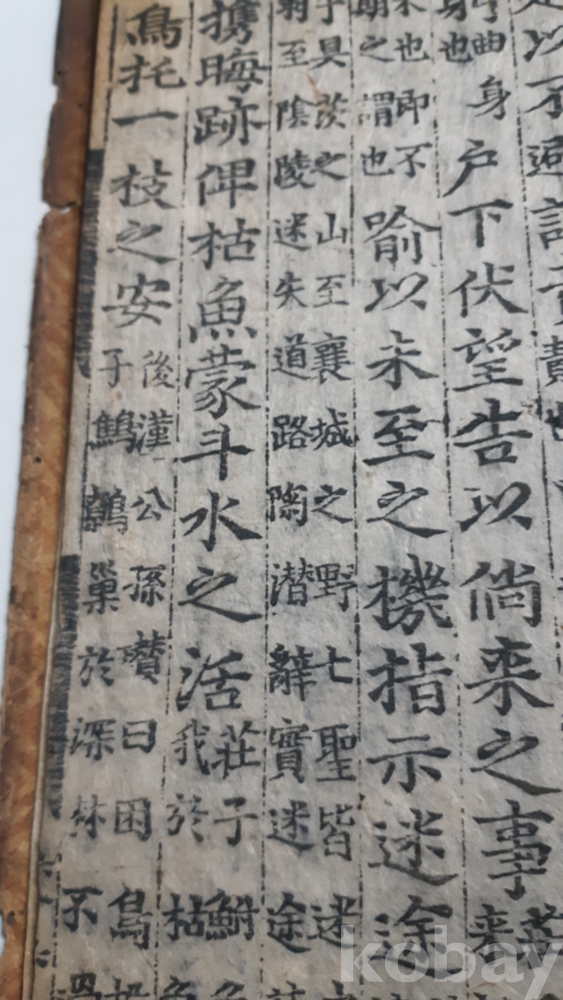 以不避
身户下伏望告以倘来之事
也即不
之謂也
喻以未至之機指示迷途
子具茨之山至襄城之野七聖皆迷
羽至陰陵迷失道路陶潜辭實迷途
携晦跡俾枯魚蒙斗水之活
莊子鮒
我於枯魚
鳥托一枝之安
後漢公孫瓚曰困鳥
子鷦鷯巢於深林不過
kobay